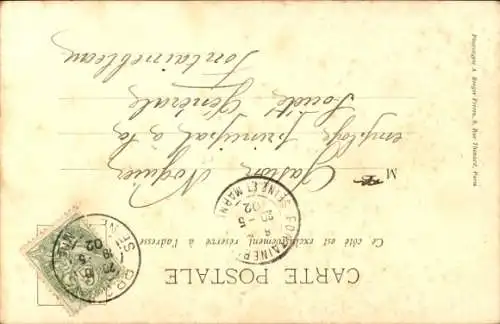 CARTE POSTALE
Ce côté est exclusivement réservé à l'adresse
M Gaston Noguier
employé principal à la
Société Générale
Fontainebleau
FONTAINEBLEAU
SEINE ET MARNE
20 - 5
02
SEINE
20 5
02
Phototypie A. Bergeret Frères, 9, Rue Thénard, Paris